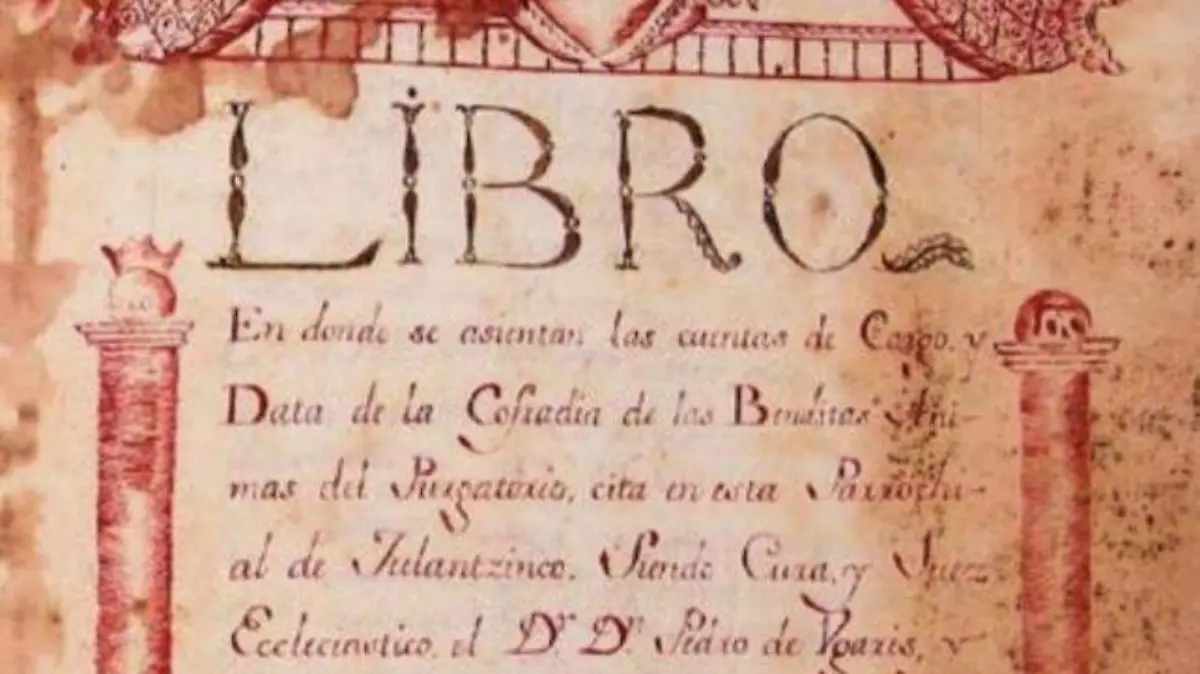 LIBRO
En donde se asientan las cuentas de Cargo, y
Data de la Cofradia de las Benditas Ani-
mas del Purgatorio, cita en esta Parrochi-
al de Tulantzinco. Siendo Cura, y Juez
Ecleciastico, el Dr. Dn. Pedro de y